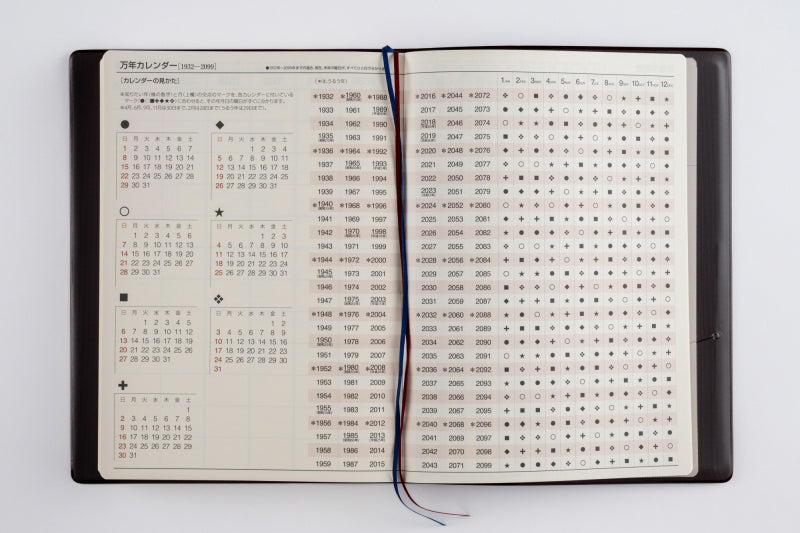 万年カレンダー[1932—2099]
[カレンダーの見かた]
(＊は、うるう年)
● ◆
日 月 火 水 木 金 土
1 2 3 4 5 6 7
8 9 10 11 12 13 14
15 16 17 18 19 20 21
22 23 24 25 26 27 28
29 30 31
日 月 火 水 木 金 土
1 2 3 4
5 6 7 8 9 10 11
12 13 14 15 16 17 18
19 20 21 22 23 24 25
26 27 28 29 30 31
○ ★
日 月 火 水 木 金 土
1 2 3 4 5 6
7 8 9 10 11 12 13
14 15 16 17 18 19 20
21 22 23 24 25 26 27
28 29 30 31
日 月 火 水 木 金 土
1 2 3
4 5 6 7 8 9 10
11 12 13 14 15 16 17
18 19 20 21 22 23 24
25 26 27 28 29 30 31
■ ❖
日 月 火 水 木 金 土
1 2 3 4 5
6 7 8 9 10 11 12
13 14 15 16 17 18 19
20 21 22 23 24 25 26
27 28 29 30 31
日 月 火 水 木 金 土
1 2
3 4 5 6 7 8 9
10 11 12 13 14 15 16
17 18 19 20 21 22 23
24 25 26 27 28 29 30
31
✚
日 月 火 水 木 金 土
1
2 3 4 5 6 7 8
9 10 11 12 13 14 15
16 17 18 19 20 21 22
23 24 25 26 27 28 29
30 31
＊1932 ＊1960 ＊1988
1933 1961 1989
1934 1962 1990
1935 1963 1991
＊1936 ＊1964 ＊1992
1937 1965 1993
1938 1966 1994
1939 1967 1995
＊1940 ＊1968 ＊1996
1941 1969 1997
1942 1970 1998
1943 1971 1999
＊1944 ＊1972 ＊2000
1945 1973 2001
1946 1974 2002
1947 1975 2003
＊1948 ＊1976 ＊2004
1949 1977 2005
1950 1978 2006
1951 1979 2007
＊1952 ＊1980 ＊2008
1953 1981 2009
1954 1982 2010
1955 1983 2011
＊1956 ＊1984 ＊2012
1957 1985 2013
1958 1986 2014
1959 1987 2015
1 2 3 4 5 6 7 8 9 10 11 12
＊2016 ＊2044 ＊2072
2017 2045 2073
2018 2046 2074
2019 2047 2075
＊2020 ＊2048 ＊2076
2021 2049 2077
2022 2050 2078
2023 2051 2079
＊2024 ＊2052 ＊2080
2025 2053 2081
2026 2054 2082
2027 2055 2083
＊2028 ＊2056 ＊2084
2029 2057 2085
2030 2058 2086
2031 2059 2087
＊2032 ＊2060 ＊2088
2033 2061 2089
2034 2062 2090
2035 2063 2091
＊2036 ＊2064 ＊2092
2037 2065 2093
2038 2066 2094
2039 2067 2095
＊2040 ＊2068 ＊2096
2041 2069 2097
2042 2070 2098
2043 2071 2099